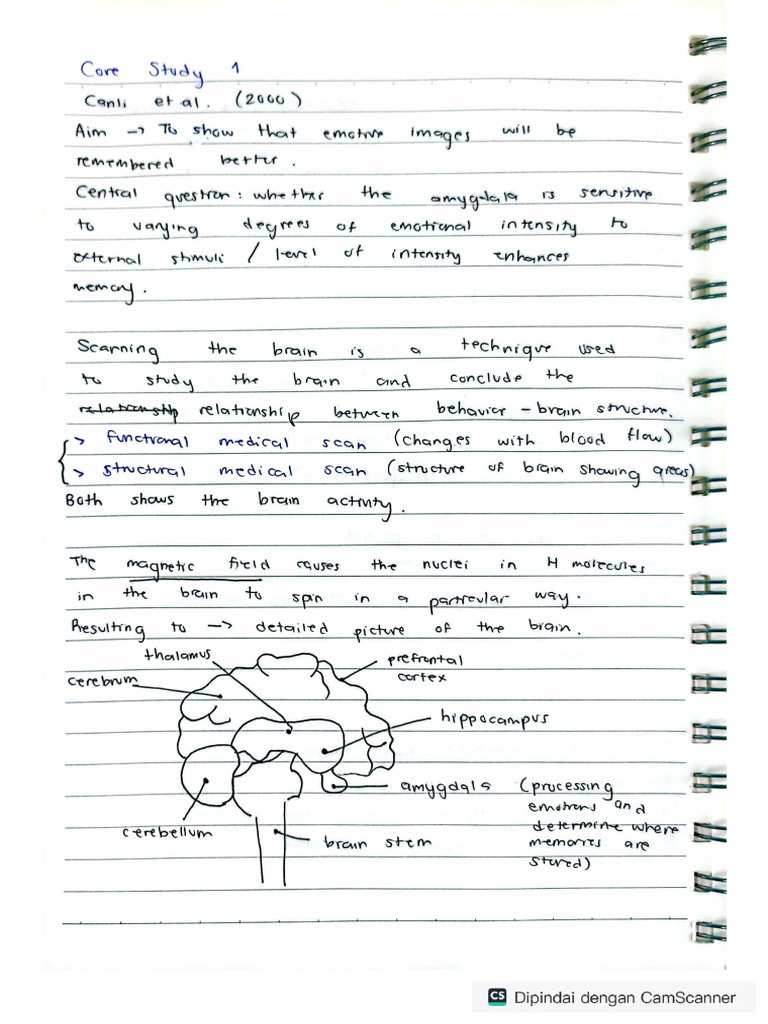 Core Study 1
Canli et al. (2000)
Aim → To show that emotive images will be
remembered better.
Central question: whether the amygdala is sensitive
to varying degrees of emotional intensity to
external stimuli / level of intensity enhances
memory.
Scanning the brain is a technique used
to study the brain and conclude the
relationship relationship between behavior - brain structure.
> functional medical scan (changes with blood flow)
> structural medical scan (structure of brain showing areas)
Both shows the brain activity.
The magnetic field causes the nuclei in H molecules
in the brain to spin in a particular way.
Resulting to → detailed picture of the brain.
thalamus
prefrontal
cortex
cerebrum
hippocampus
amygdala (processing
emotions and
determine where
memories are
stored)
cerebellum
brain stem
CS Dipindai dengan CamScanner